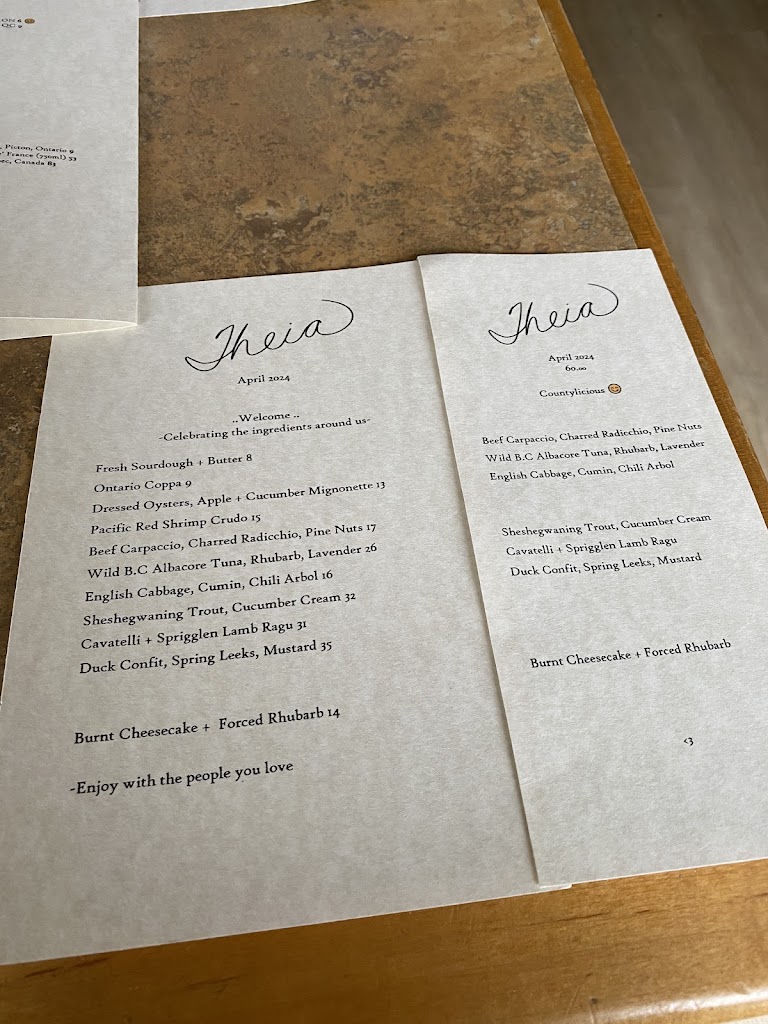 ON 6 😊
QC 9
, Picton, Ontario 9
France (750ml) 53
bec, Canada 83
Theia
April 2024
..Welcome ..
-Celebrating the ingredients around us-
Fresh Sourdough + Butter 8
Ontario Coppa 9
Dressed Oysters, Apple + Cucumber Mignonette 13
Pacific Red Shrimp Crudo 15
Beef Carpaccio, Charred Radicchio, Pine Nuts 17
Wild B.C Albacore Tuna, Rhubarb, Lavender 26
English Cabbage, Cumin, Chili Arbol 16
Sheshegwaning Trout, Cucumber Cream 32
Cavatelli + Sprigglen Lamb Ragu 31
Duck Confit, Spring Leeks, Mustard 35
Burnt Cheesecake + Forced Rhubarb 14
-Enjoy with the people you love
Theia
April 2024
60.00
Countylicious 😊
Beef Carpaccio, Charred Radicchio, Pine Nuts
Wild B.C Albacore Tuna, Rhubarb, Lavender
English Cabbage, Cumin, Chili Arbol
Sheshegwaning Trout, Cucumber Cream
Cavatelli + Sprigglen Lamb Ragu
Duck Confit, Spring Leeks, Mustard
Burnt Cheesecake + Forced Rhubarb
<3